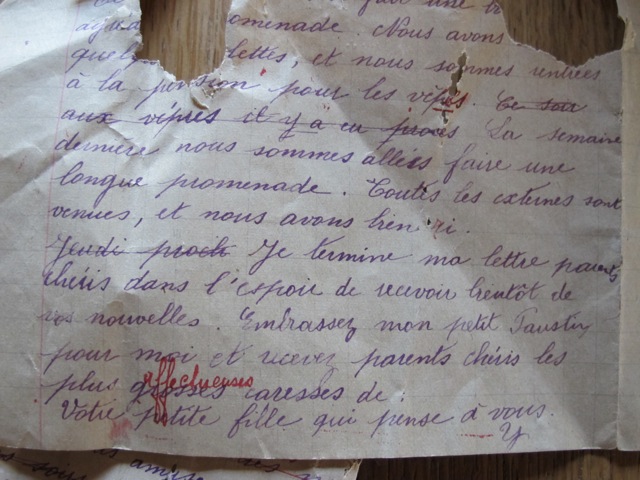 faire une
agréa promenade. Nous avons
quelq lettes, et nous sommes rentrées
à la pension pour les vêpres. Ce soir
aux vêpres il y a eu procès La semaine
dernière nous sommes allées faire une
longue promenade. Toutes les externes sont
venues, et nous avons bien ri.
Jeudi proch Je termine ma lettre parents
chéris dans l'espoir de recevoir bientôt de
vos nouvelles. Embrassez mon petit Faustin
pour moi et recevez parents chéris les
affectueuses
plus grosses caresses de:
Votre petite fille qui pense à vous.
Y